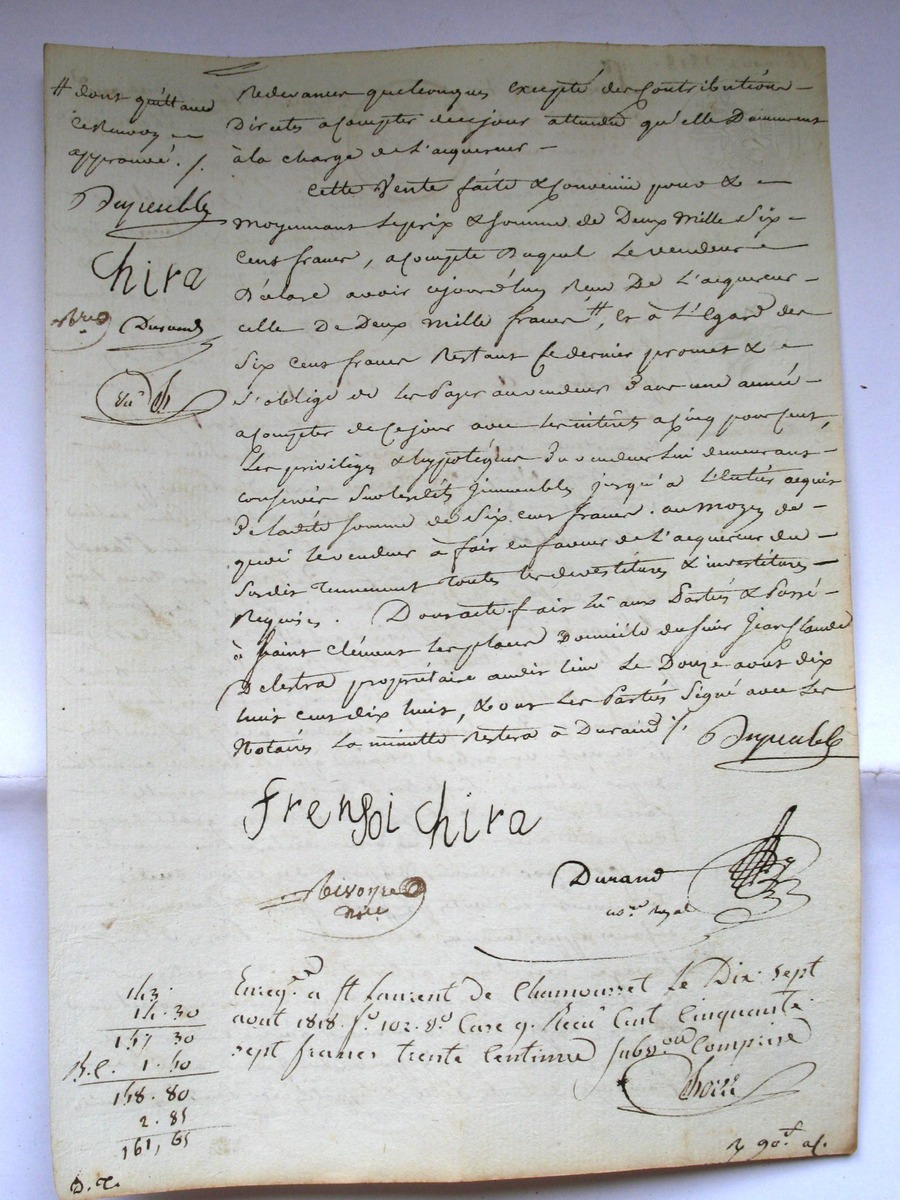 # dont quittance
ce Renvoy
approuvé. /.
Dupeuble
Chira
Durand
Redevances quelconques excepté des Contributions
Directes a Compter de ce jour attendu qu'elle Demeurent
à la charge de L'aquereur
Cette Vente faite & Convenüe pour &
moyennant le prix & somme de Deux Mille Six
Cent francs, a compte Duquel Le vendeur
Déclare avoir cejourd'huy Reçu De L'aquereur
celle de Deux mille francs #, Et à L'Egard des
Six cent francs Restant Ce dernier promet &
s'oblige de les Payer au vendeur Dans une année
a Compter de Ce jour avec les intérêts a Cinq pour Cent,
Les priviléges & hypotéques Du vendeur Lui demeurant
conservés sur lesdits Immeubles jusqu'à l'entier acquit
De ladite somme de Six cent francs. au moyen de
quoi le vendeur à fait en faveur de L'aquereur du
susdit Tennement toutes les devestitures & investitures
Requises. Dont acte fait Lû aux Parties & Passé
à Saint Clément les places Domicile du sieur Jean Claude
Delestra propriétaire audit lieu Le Douze aoust dix
huit cent dix huit, & ont les Parties Signé avec Les
Notaires La minutte Restera à Durand /. Dupeuble
frensoi Chira
Durand
no.re Royal
N.re
Enreg.é a S.t Laurent de Chamousset Le Dix Sept
aout 1818. f.o 102. v.o Case 9. Recu Cent Cinquante
sept francs trente Centimes Subv.on Comprise
143.
14. 30
157 30
1. 50
158. 80
2. 85
161, 65